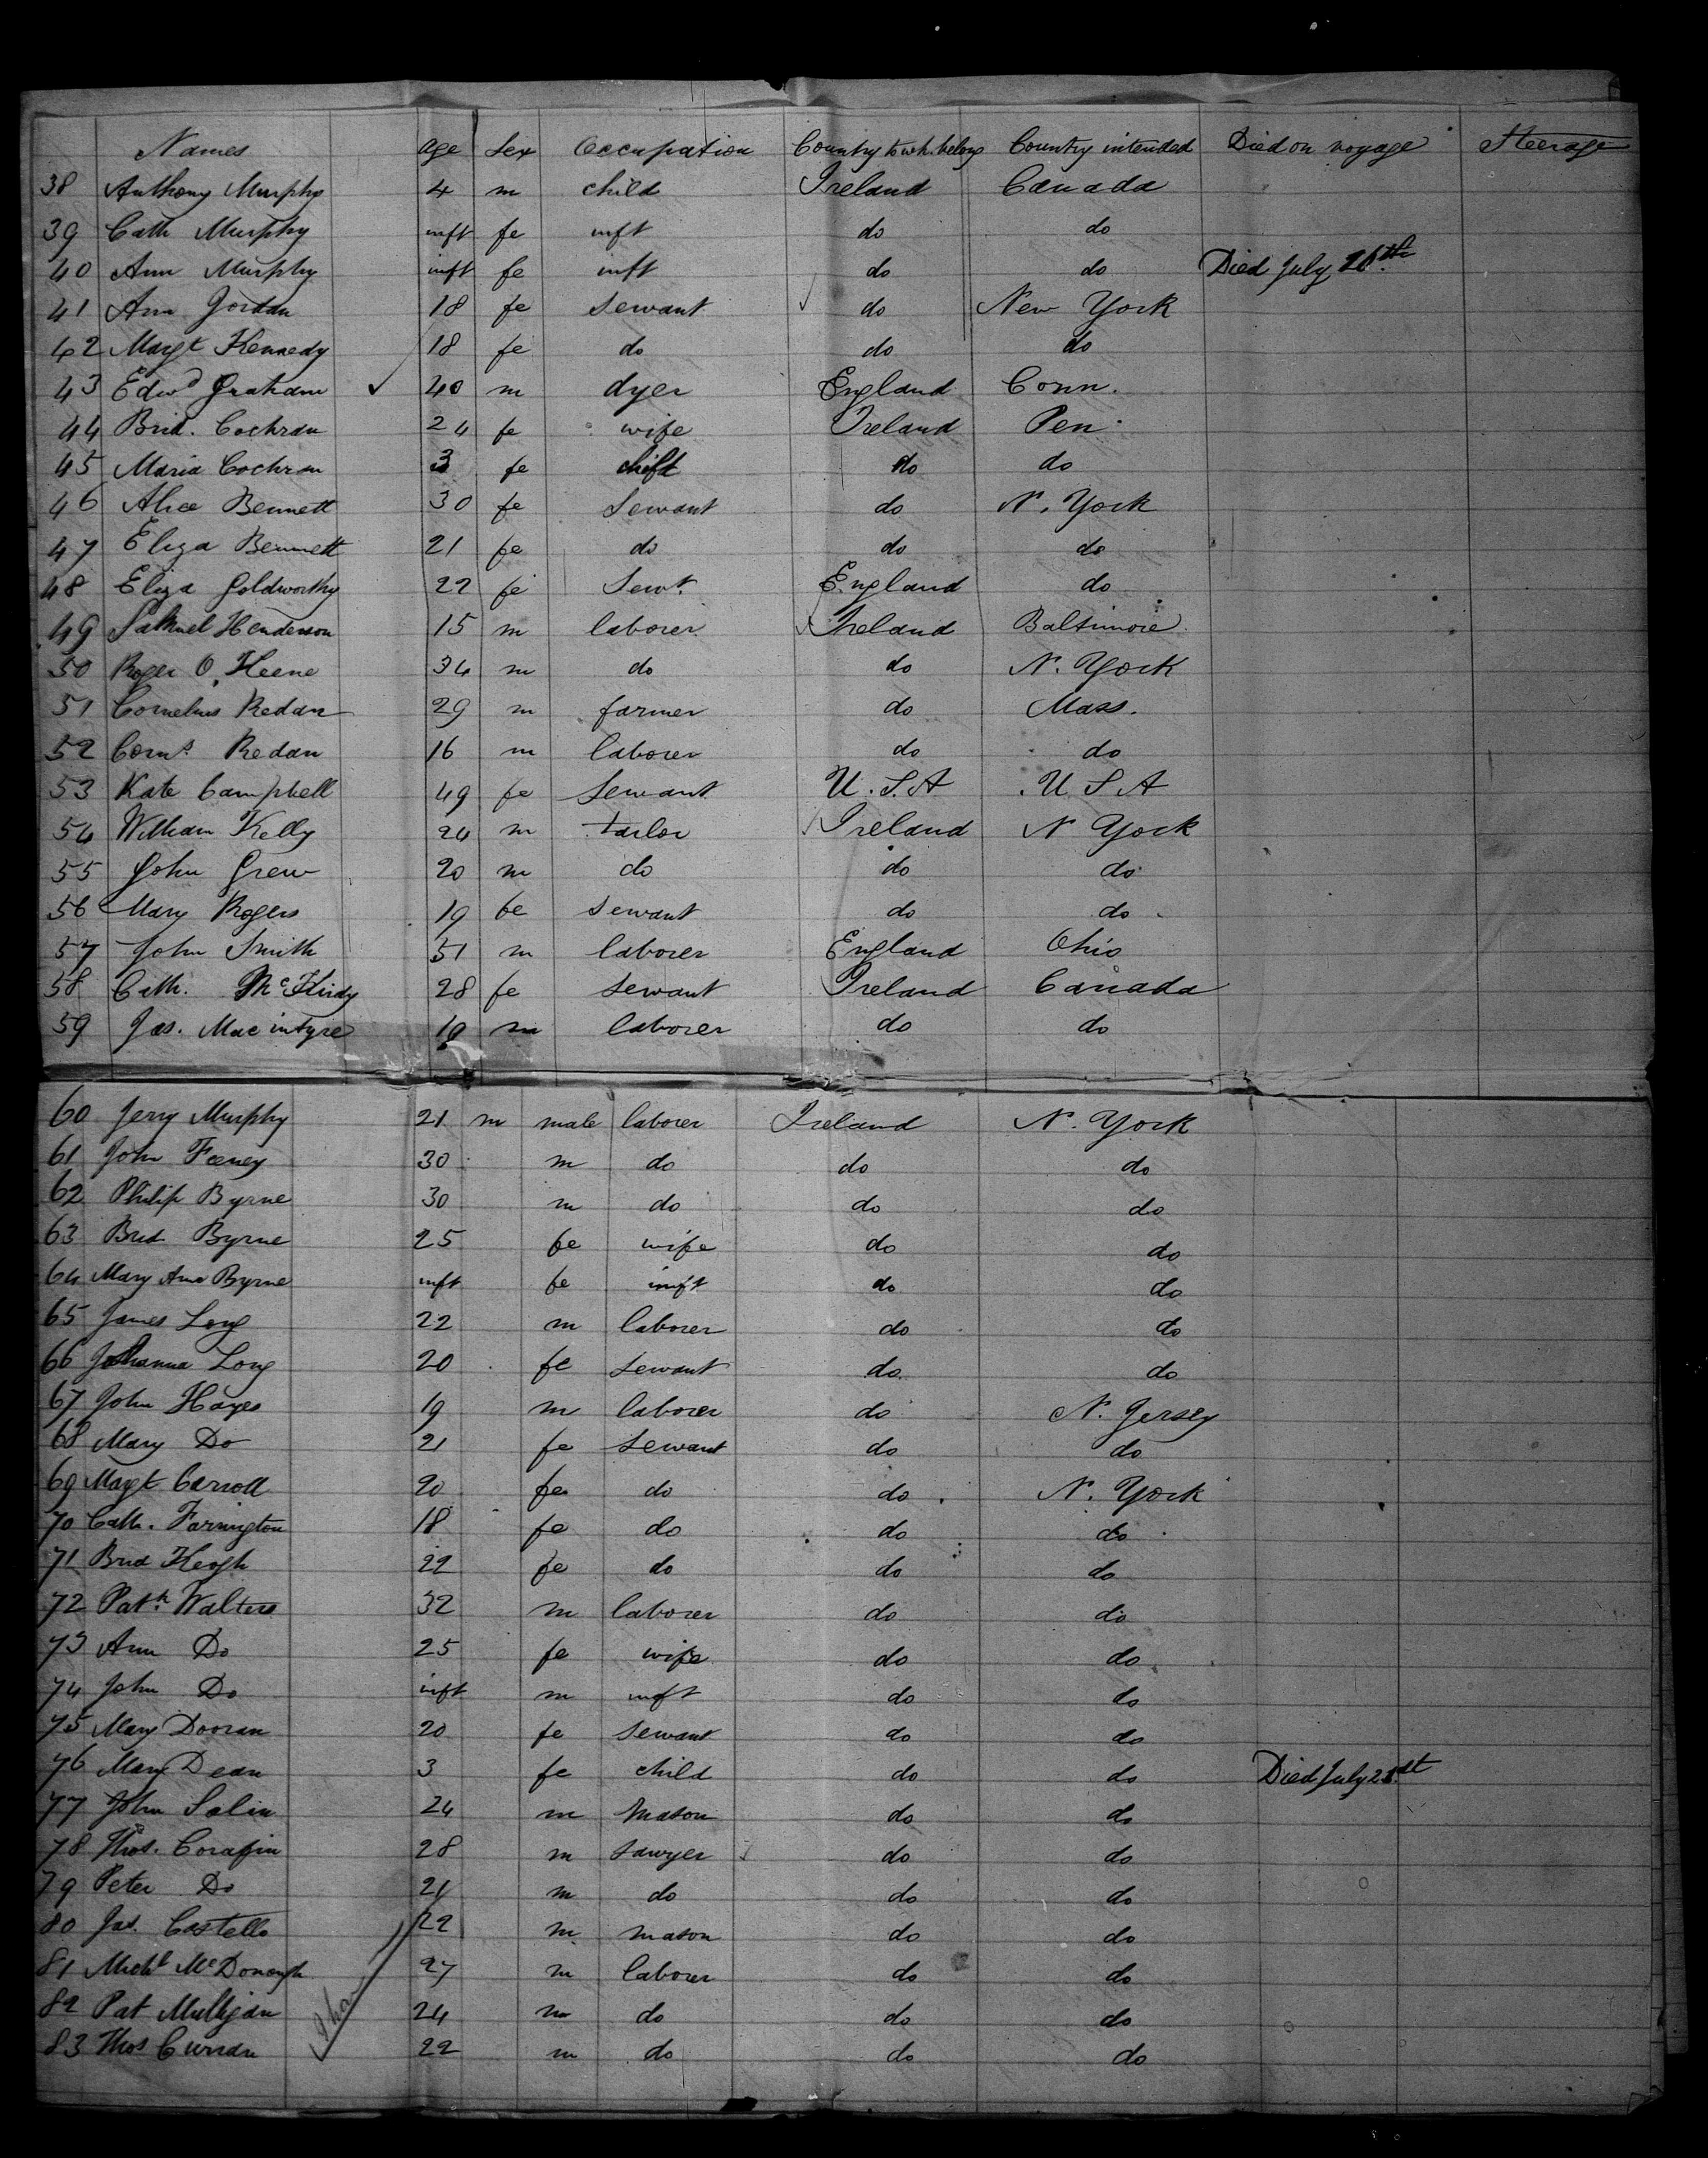 Names age Sex Occupation Country to wh. belong Country intended Died on voyage Steerage
38 Anthony Murphy 4 m child Ireland Canada
39 Cath Murphy inft fe inft do do
40 Ann Murphy inft fe inft do do Died July 26th
41 Ann Jordan 18 fe servant do New York
42 Margt Kennedy 18 fe do do do
43 Edwd Graham 40 m dyer England Conn.
44 Brid. Cochran 24 fe wife Ireland Pen
45 Maria Cochran 3 fe child do do
46 Alice Bennett 30 fe Servant do N. York
47 Eliza Bennett 21 fe do do do
48 Eliza Goldworthy 22 fe Servt. England do
49 Samuel Henderson 15 m laborer Ireland Baltimore
50 Roger O. Keene 34 m do do N. York
51 Cornelius Redan 29 m farmer do Mass.
52 Corns. Redan 16 m laborer do do
53 Kate Campbell 49 fe Servant U.S.A U S A
54 William Kelly 24 m tailor Ireland N York
55 John Grew 20 m do do do
56 Mary Rogers 19 fe servant do do
57 John Smith 31 m laborer England Ohio
58 Cath. 28 fe servant Ireland Canada
59 Jas. Macintyre 19 m laborer do do
60 Jerry Murphy 21 m male laborer Ireland N. York
61 John Feeney 30 m do do do
62 Philip Byrne 30 m do do do
63 Brid Byrne 25 fe wife do do
64 Mary Ann Byrne inft fe inft do do
65 James Long 22 m laborer do do
66 Johanna Long 20 fe servant do do
67 John Hayes 19 m laborer do N. Jersey
68 Mary Do 21 fe servant do do
69 Magt Carroll 20 fe do do N. York
70 Cath. Farrington 18 fe do do do
71 Brid Keogh 22 fe do do do
72 Patk. Walters 32 m laborer do do
73 Ann Do 25 fe wife do do
74 John Do inft m inft do do
75 Mary Dooran 20 fe servant do do
76 Mary Dean 3 fe child do do Died July 21st
77 John Salin 24 m mason do do
78 Thos. Corafin 28 m sawyer do do
79 Peter Do 21 m do do do
80 Jas. Costello 22 m mason do do
81 Michl McDonough 27 m laborer do do
82 Pat Mulligan 24 m do do do
83 Thos Curran 22 m do do do